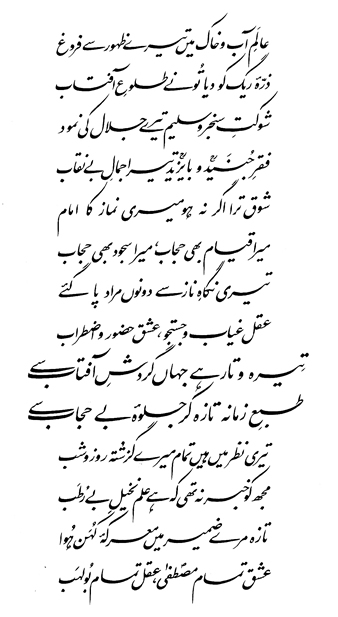 عالمِ آب و خاک میں تیرے ظہور سے فروغ
ذرّۂ ریگ کو دیا تُو نے طلوعِ آفتاب
شوکتِ سنجر و سلیم تیرے جلال کی نمود
فقرِ جنیدؒ و بایزیدؒ تیرا جمالِ بے نقاب
شوق ترا اگر نہ ہو میری نماز کا امام
میرا قیام بھی حجاب، میرا سجود بھی حجاب
تیری نگاہِ ناز سے دونوں مراد پا گئے
عقل غیاب و جستجو، عشق حضور و اضطراب
تیرہ و تار ہے جہاں گردشِ آفتاب سے
طبعِ زمانہ تازہ کر جلوۂ بے حجاب سے
تیری نظر میں ہیں تمام میرے گزشتہ روز و شب
مجھ کو خبر نہ تھی کہ ہے علم نخیلِ بے رُطَب
تازہ مرے ضمیر میں معرکۂ کہُن ہُوا
عشق تمام مصطفیٰؐ، عقل تمام بُولہَب